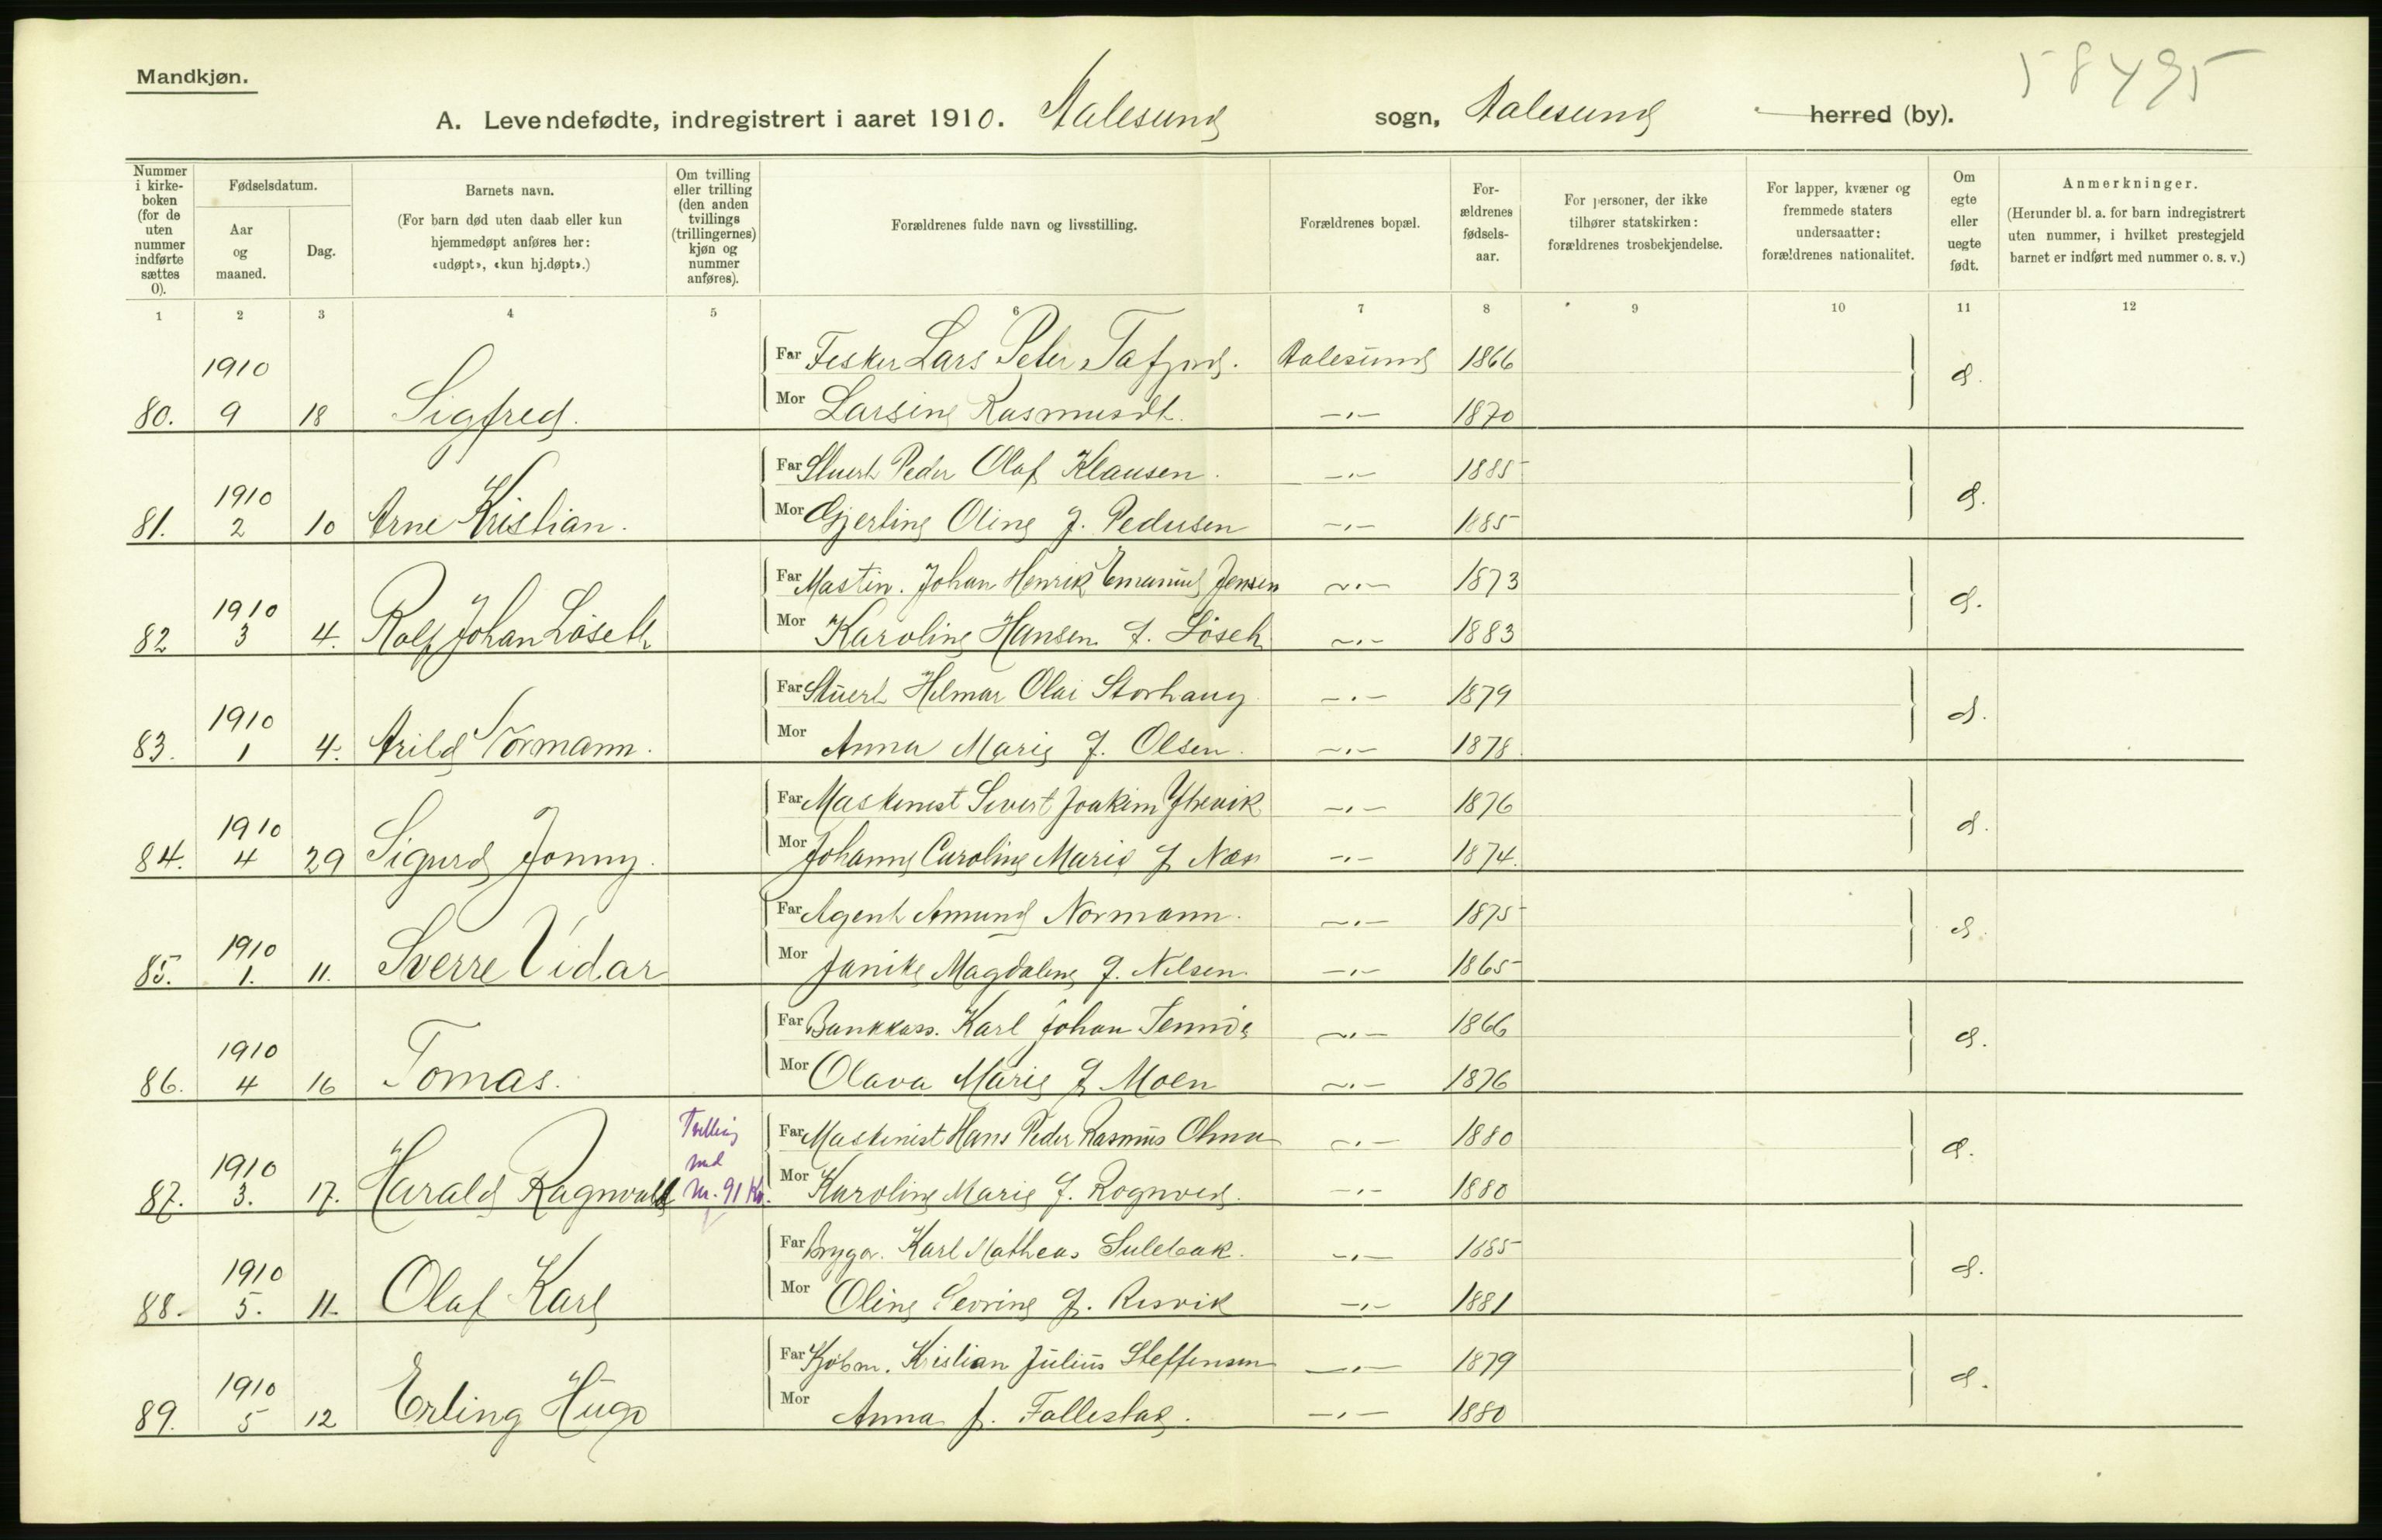 58495
Mandkjøn.
A. Levendefødte, indregistrert i aaret 1910. Aalesund sogn, Aalesund herred (by).
Nummer i kirke-boken (for de uten nummer indførte sættes 0).
Fødselsdatum.
Aar og maaned.
Dag.
Barnets navn.
(For barn død uten daab eller kun hjemmedøpt anføres her: «udøpt», «kun hj.døpt».)
Om tvilling eller trilling (den anden tvillings (trillingernes) kjøn og nummer anføres).
Forældrenes fulde navn og livsstilling.
Forældrenes bopæl.
For-ældrenes fødsels-aar.
For personer, der ikke tilhører statskirken: forældrenes trosbekjendelse.
For lapper, kvæner og fremmede staters undersaatter: forældrenes nationalitet.
Om egte eller uegte født.
Anmerkninger.
(Herunder bl. a. for barn indregistrert uten nummer, i hvilket prestegjeld barnet er indført med nummer o. s. v.)
1 2 3 4 5 6 7 8 9 10 11 12
1910 Far Fisker Lars Peter Tafjord. Aalesund 1866
80. 9 18 Sigfred. Mor Larsine Rasmusdt. -"- 1870
Far Stuert Peder Olaf Klausen. -"- 1885
1910
81. 2 10 Arne Kristian. Mor Gjertine Oline f. Pedersen -"- 1885
Far Maskin. Johan Henrik Emanuel Jensen -"- 1873
1910
82 3 4. Rolf Johan Løseth Mor Karoline Hansen f. Løseth -"- 1883
Far Stuert Hilmar Olai Storhaug -"- 1879
1910
83. 1 4. Arild Normann. Mor Anna Marie f. Olsen. -"- 1878.
Far Maskinist Sivert Joakim Ytrevik -"- 1876
1910
84. 4 29 Sigurd Jonny. Mor Johanne Caroline Marie f. Næs -"- 1874.
Far Agent Amund Normann. -"- 1875
1910
85. 1. 11. Sverre Vidar Mor Janike Magdalene f. Nilsen -"- 1865
Far Bankkass. Karl Johan -"- 1866
1910
86. 4 16 Tomas. Mor Olava Marie f. Moen -"- 1876
Tvilling Far Maskinist Hans Peder Rasmus -"- 1880
1910 med
87. 3. 17. Harald Ragnvald nr. 91 Kv. Mor Karoline Marie f. -"- 1880
Far Karl Matheas Sulebak. -"- 1885
1910
88. 5. 11. Olaf Karl Mor Oline Severine f. Risvik -"- 1881
Far Kjøbm. Kristian Julius Steffensen -"- 1879
1910
89. 5 12 Erling Hugo Mor Anna f. Follestad. -"- 1880